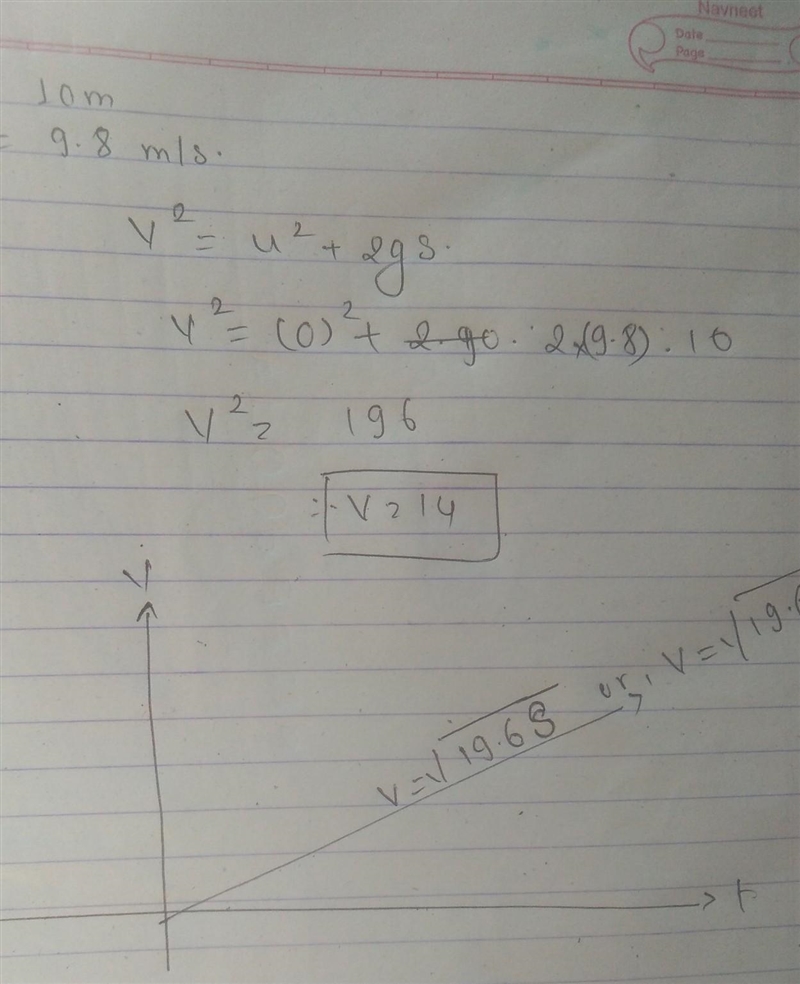 Navneet
Date
Page
10m
= 9.8 m/s.
V² = u² + 2gs.
V² = (0)² + 2×(9.8).10
V² = 196
V = 14
V
V = √19.6S or, V = √19.6
t